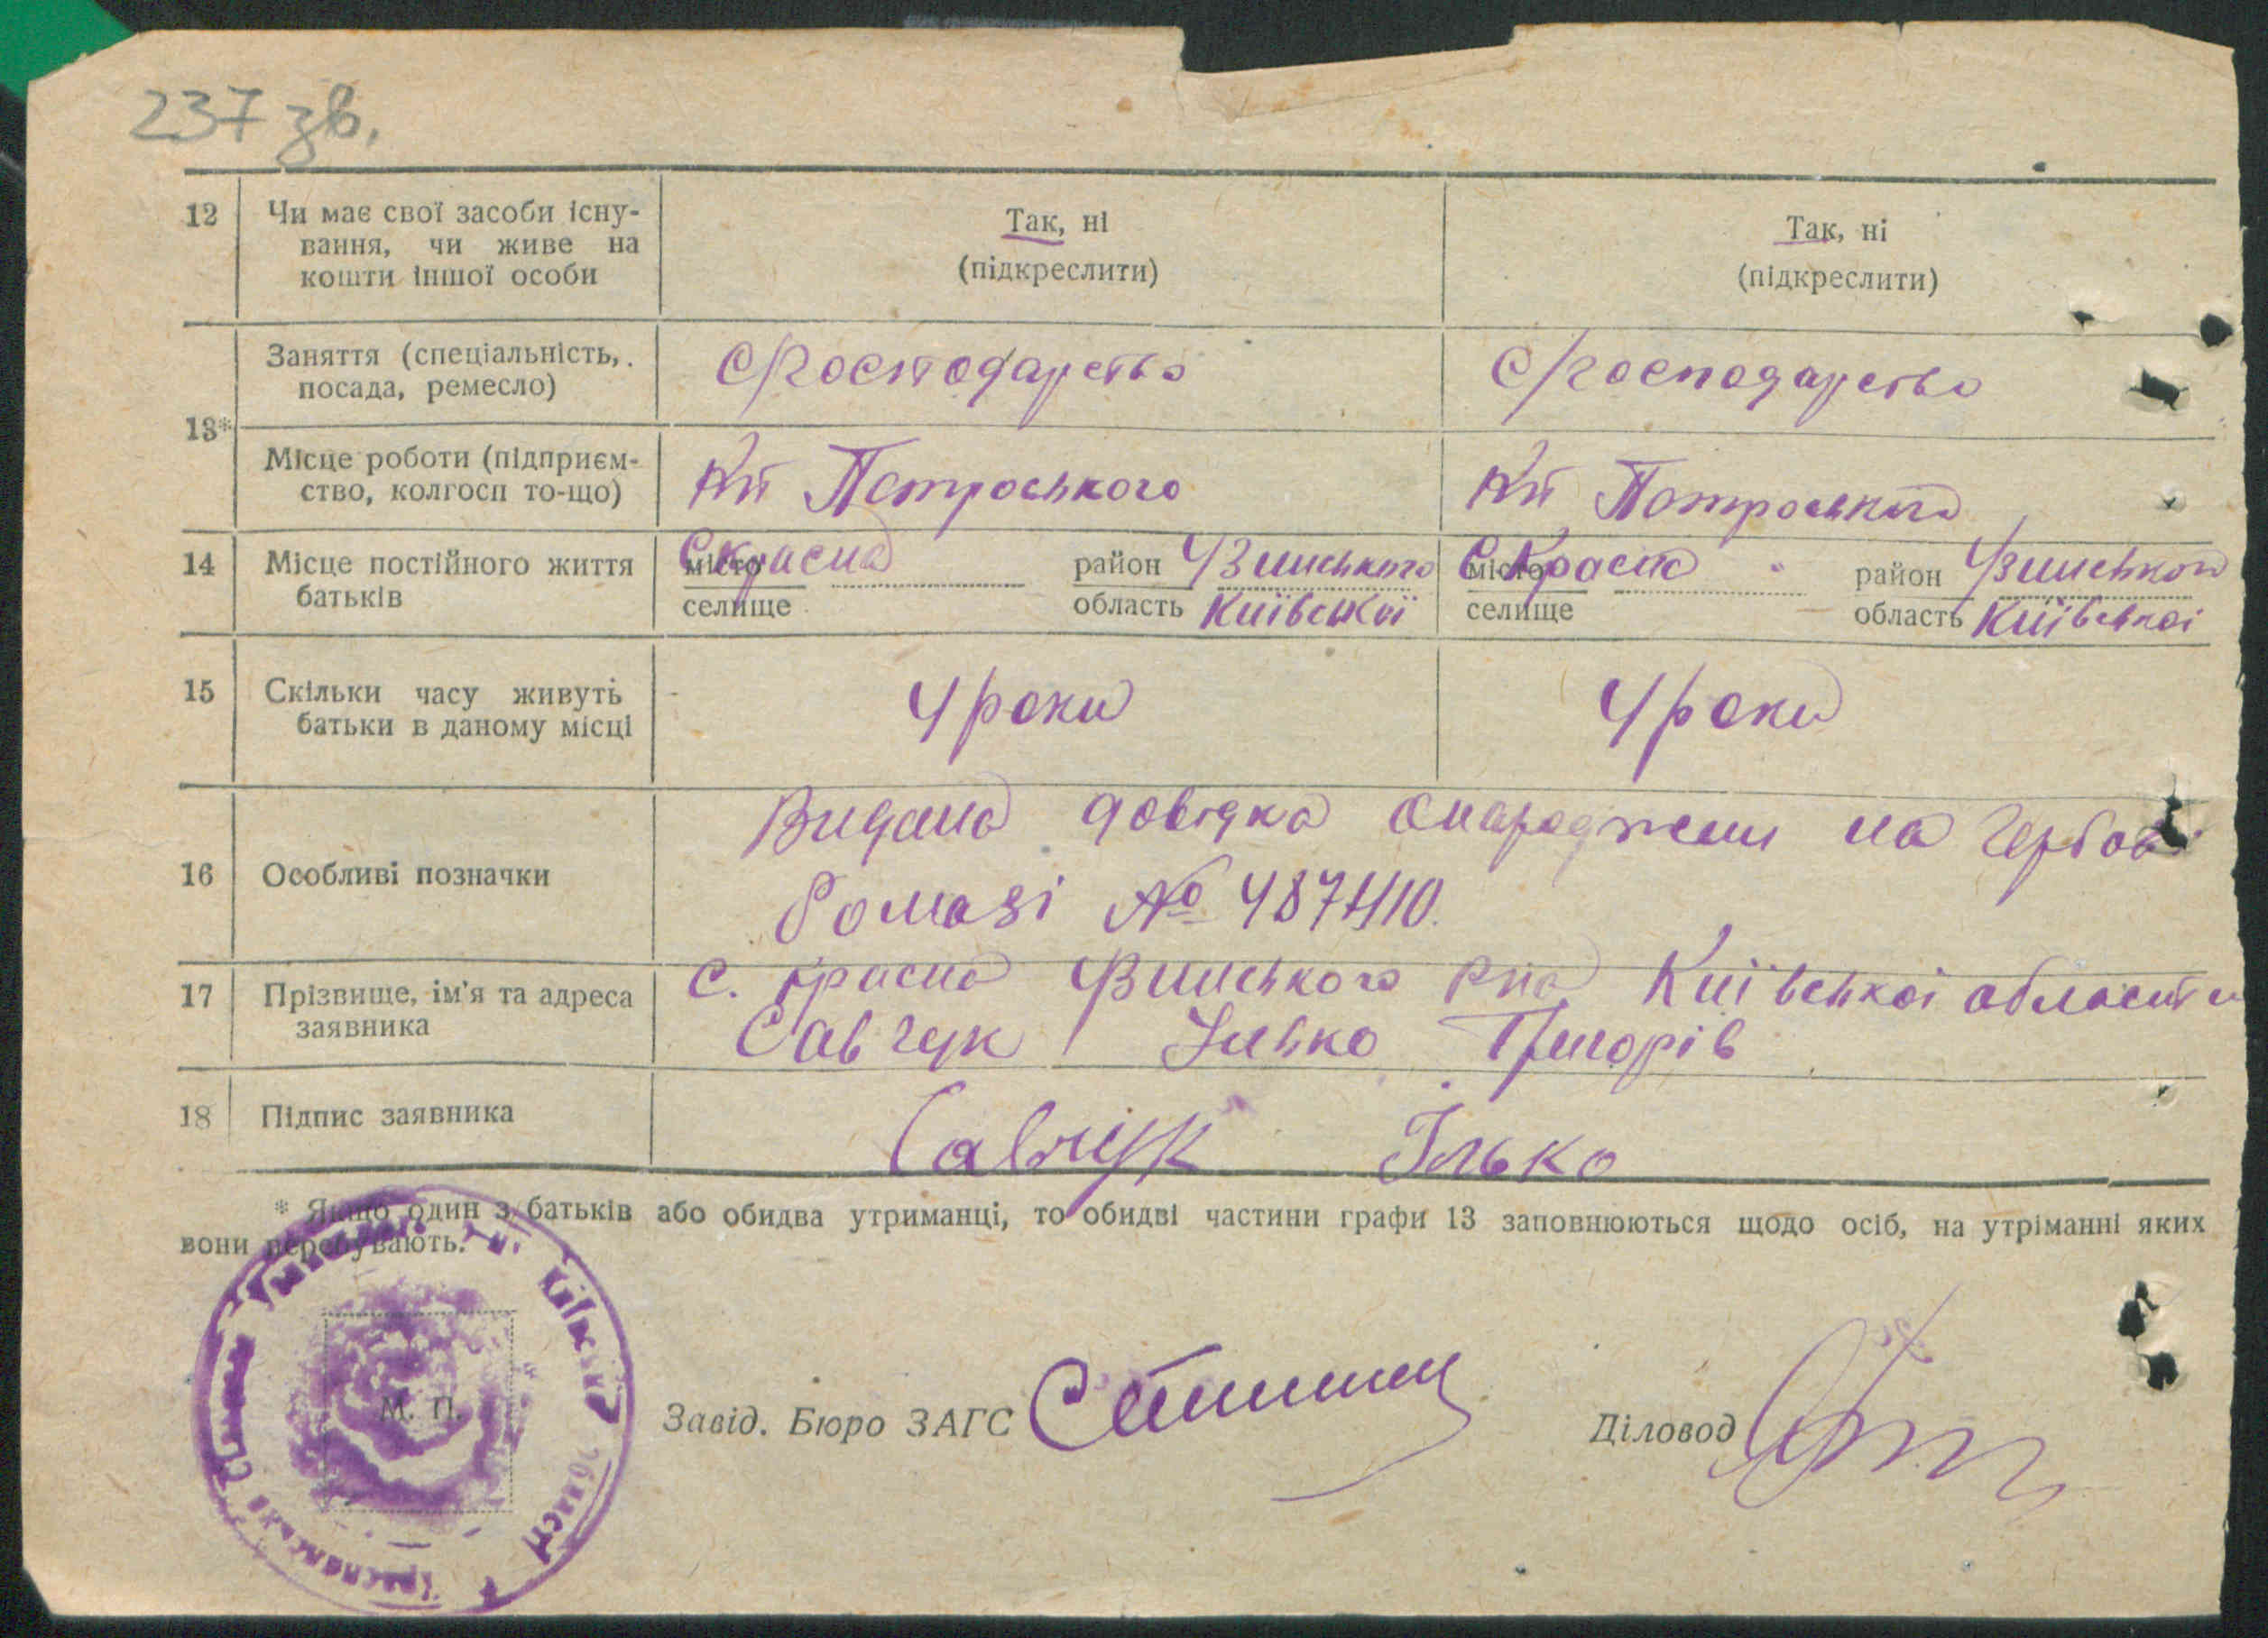 237 зв.
12 Чи має свої засоби існу- Так, ні Так, ні
вання, чи живе на (підкреслити) (підкреслити)
кошти іншої особи
Заняття (спеціальність, С/господарство С/господарство
посада, ремесло)
13*
Місце роботи (підприєм- Кп Петроського Кп Петроського
ство, колгосп то-що)
14 Місце постійного життя місто С Красна район Узинського місто С Красна район Узинського
батьків селище область Київської селище область Київської
15 Скільки часу живуть 4 роки 4 роки
батьки в даному місці
Видана довідка онароджени на гербов
16 Особливі позначки бомазі № 487410.
17 Прізвище, ім'я та адреса с. Красна Узинського р-на Київської области
заявника Савчук Ілько Григорів
18 Підпис заявника Савчук Ілько
* Якщо один з батьків або обидва утриманці, то обидві частини графи 13 заповнюються щодо осіб, на утріманні яких
вони перебувають.
М. П.
Завід. Бюро ЗАГС Діловод